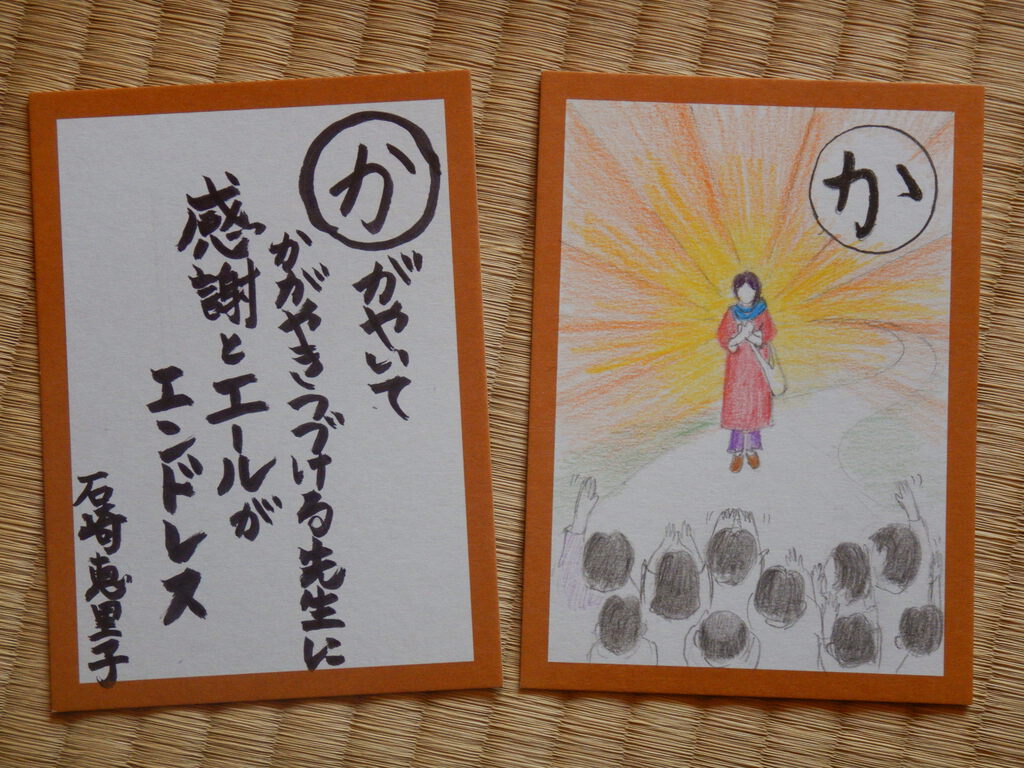 か
がやいて
かがやきつづける先生に
感謝とエールが
エンドレス
石崎恵里子
か